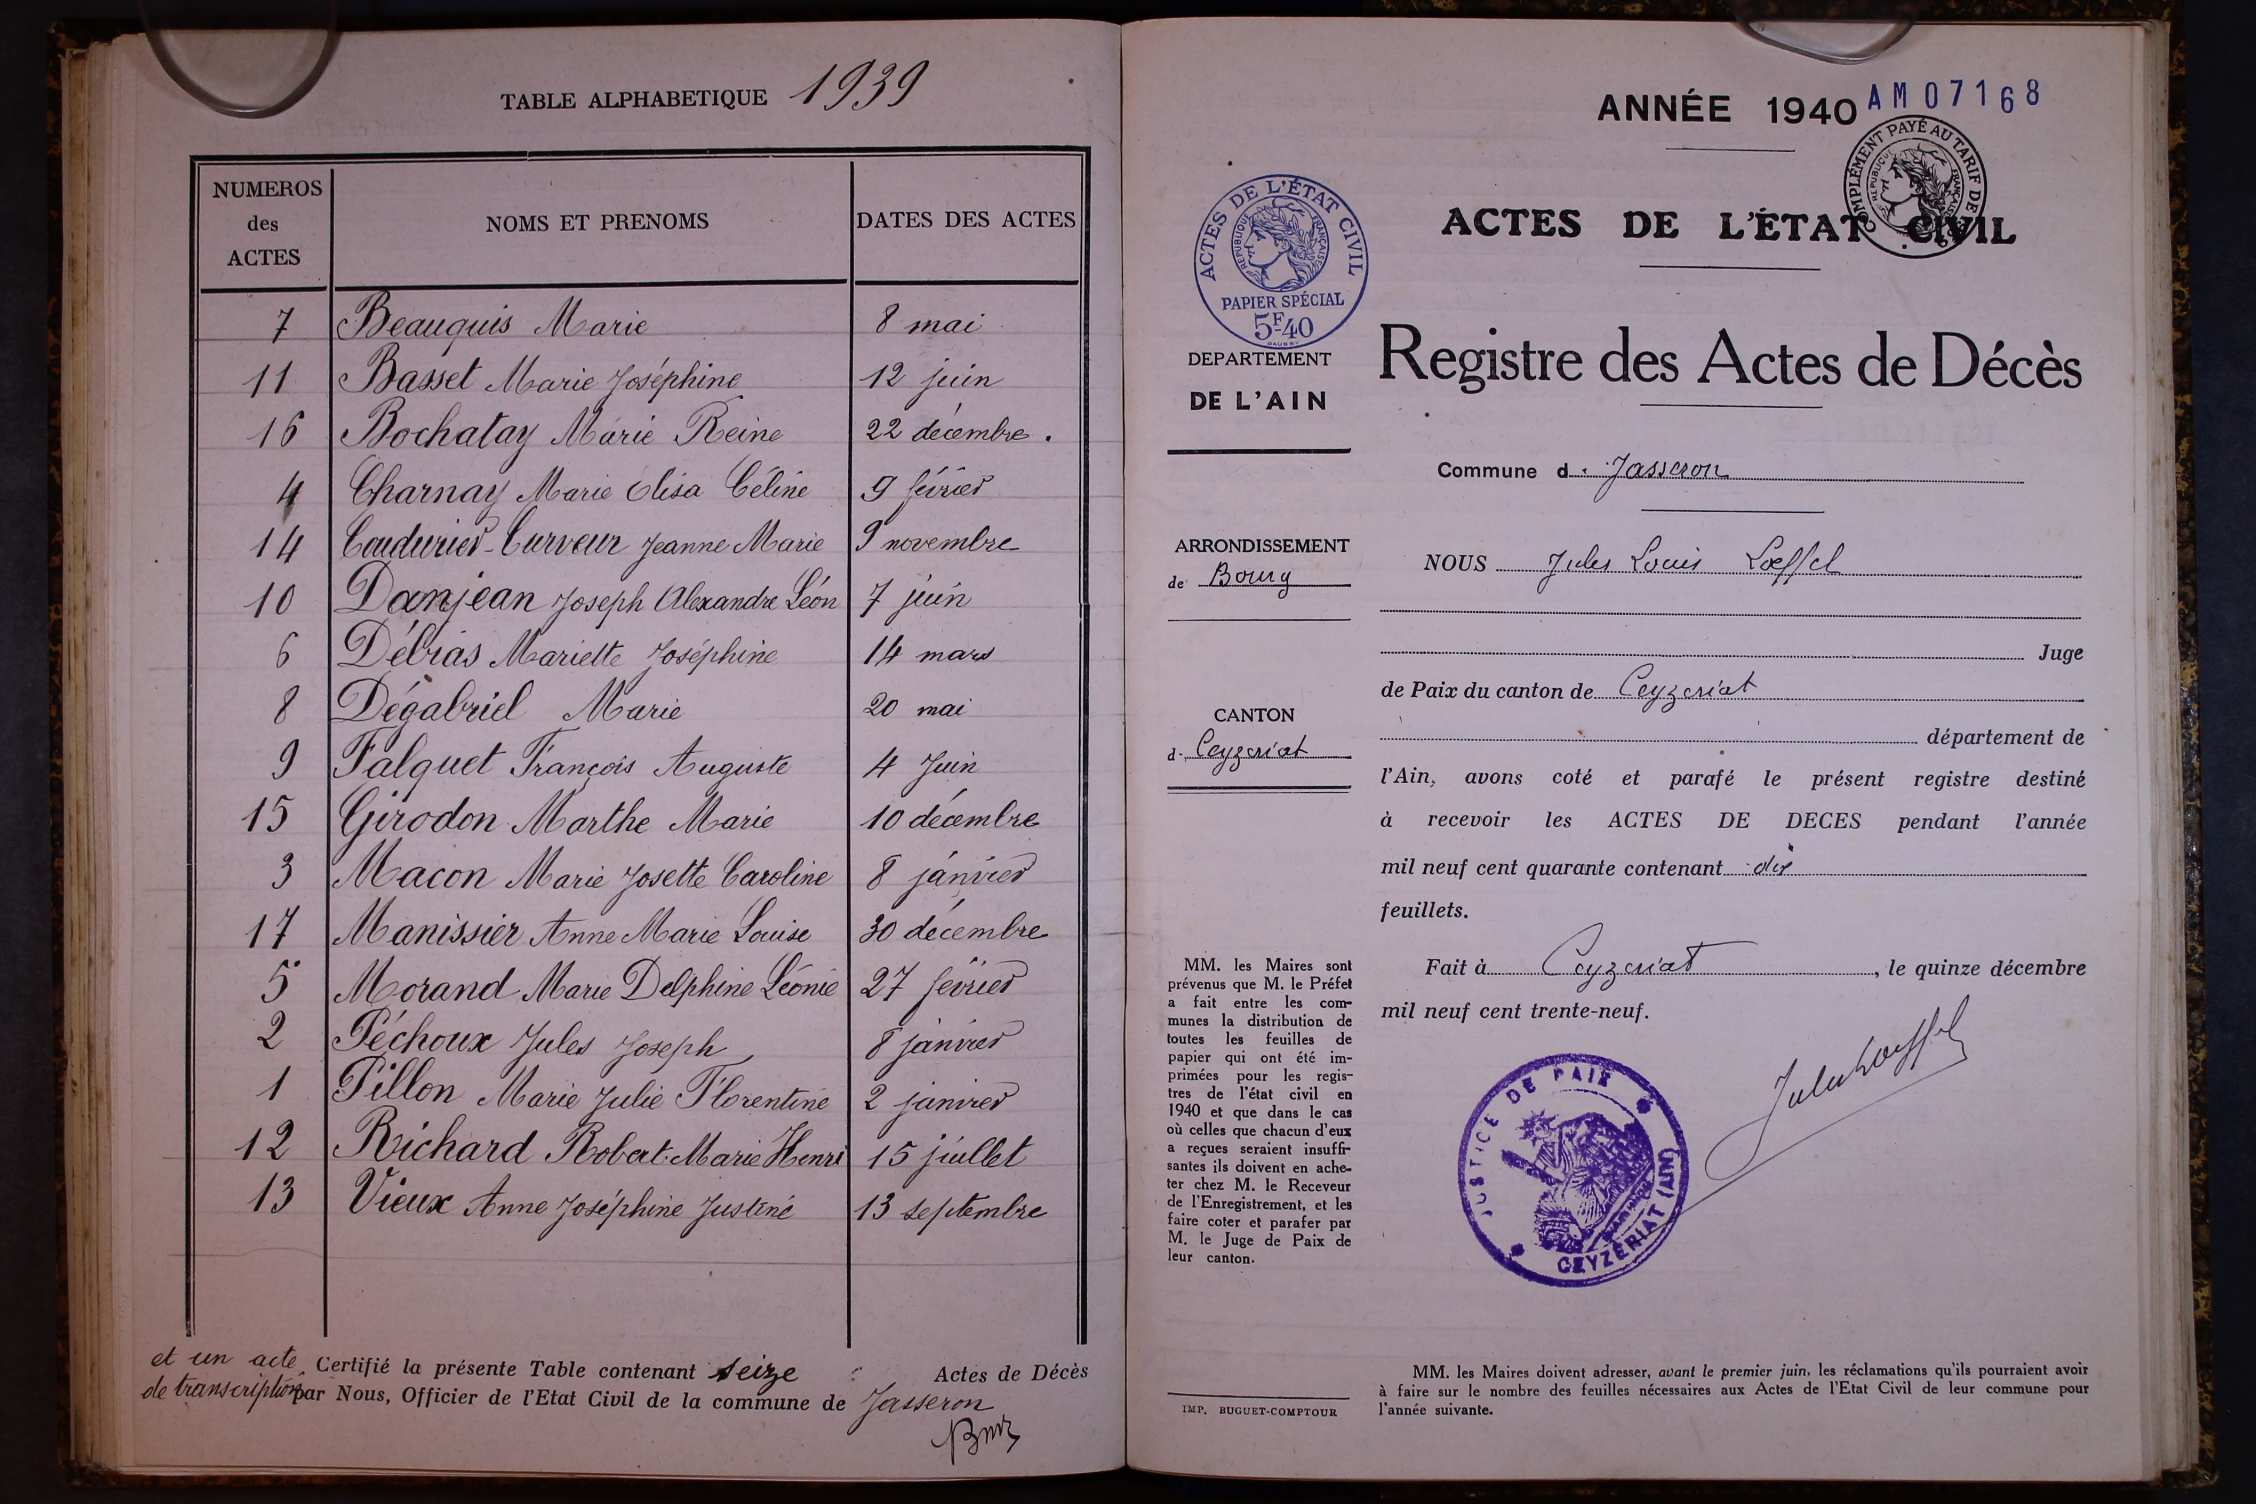 TABLE ALPHABETIQUE 1939
NUMEROS des ACTES NOMS ET PRENOMS DATES DES ACTES
7 Beauquis Marie 8 mai
11 Basset Marie Joséphine 12 juin
16 Bochatay Marie Reine 22 décembre.
4 Charnay Marie Elisa Céline 9 février
14 Coudurier-Curveur Jeanne Marie 9 novembre
10 Danjean Joseph Alexandre Léon 7 juin
6 Débias Mariette Joséphine 14 mars
8 Dégabriel Marie 20 mai
9 Falquet François Auguste 4 Juin
15 Girodon Marthe Marie 10 décembre
3 Macon Marie Josette Caroline 8 janvier
17 Manissier Anne Marie Louise 30 décembre
5 Morand Marie Delphine Léonie 27 février
2 Péchoux Jules Joseph 8 janvier
1 Pillon Marie Julie Florentine 2 janvier
12 Richard Robert Marie Henri 15 juillet
13 Vieux Anne Joséphine Justine 13 septembre
et un acte Certifié la présente Table contenant seize Actes de Décès
de transcription par Nous, Officier de l'Etat Civil de la commune de Jasseron
ANNÉE 1940
AM07168
COMPLÉMENT PAYÉ AU TARIF DE
RÉPUBLIQUE FRANÇAISE
ACTES DE L'ÉTAT CIVIL
ACTES DE L'ÉTAT CIVIL
RÉPUBLIQUE FRANÇAISE
PAPIER SPÉCIAL
5F40
DEPARTEMENT
DE L'AIN
Registre des Actes de Décès
Commune d. Jasseron
ARRONDISSEMENT
de Bourg
NOUS Jules Louis Loeffel
Juge
de Paix du canton de Ceyzeriat
CANTON
d. Ceyzeriat
département de
l'Ain, avons coté et parafé le présent registre destiné
à recevoir les ACTES DE DECES pendant l'année
mil neuf cent quarante contenant dix
feuillets.
Fait à Ceyzeriat, le quinze décembre
mil neuf cent trente-neuf.
Jules Loeffel
JUSTICE DE PAIX
CEYZÉRIAT (AIN)
MM. les Maires sont
prévenus que M. le Préfet
a fait entre les com-
munes la distribution de
toutes les feuilles de
papier qui ont été im-
primées pour les regis-
tres de l'état civil en
1940 et que dans le cas
où celles que chacun d'eux
a reçues seraient insuffi-
santes ils doivent en ache-
ter chez M. le Receveur
de l'Enregistrement, et les
faire coter et parafer par
M. le Juge de Paix de
leur canton.
IMP. BUGUET-COMPTOUR
MM. les Maires doivent adresser, avant le premier juin, les réclamations qu'ils pourraient avoir
à faire sur le nombre des feuilles nécessaires aux Actes de l'Etat Civil de leur commune pour
l'année suivante.